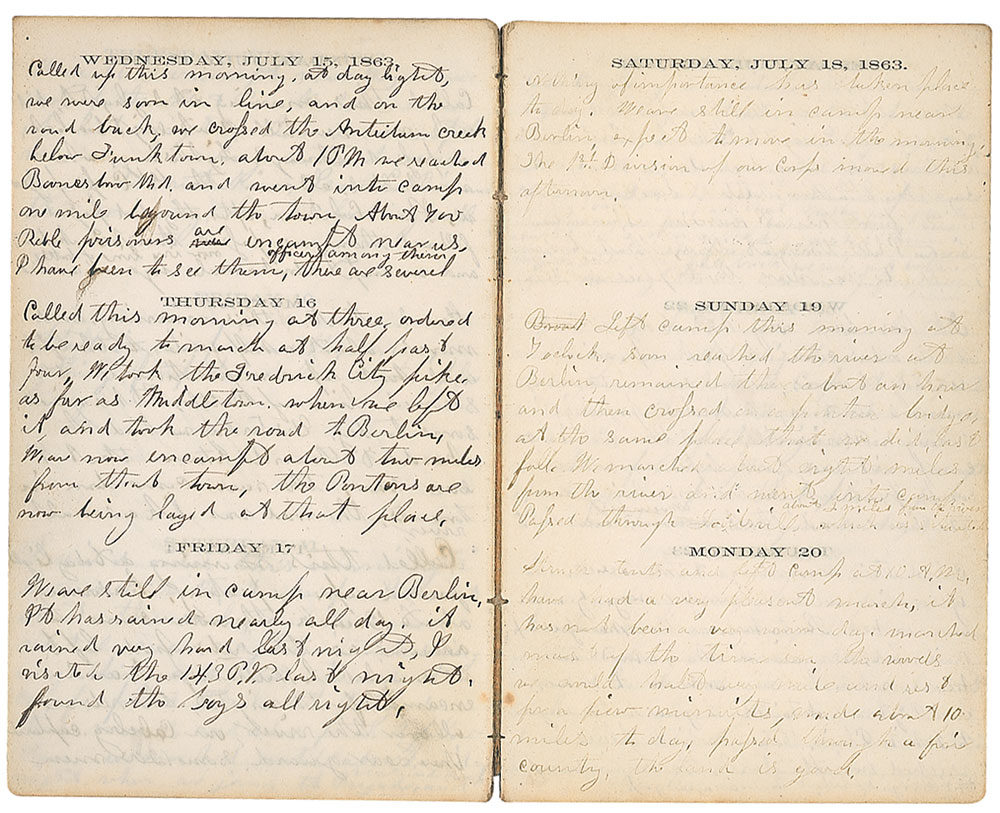 WEDNESDAY, JULY 15, 1863.
Called up this morning, at day light,
we were soon in line, and on the
road back, we crossed the Antietum creek
below Funktown, about 1 PM we reached
Boonesboro Md. and went into camp
one mile beyound the town, About 700
Reble prisoners are encampt near us
officers among them
I have been to see them, there are several
THURSDAY 16
Called this morning at three, ordered
to be ready to march at half past
four, We took the Fredrick City pike
as far as Middletown. when we left
it and took the road to Berlin,
We are now encampt about two miles
from that town, the Pontons are
now being layed at that place,
FRIDAY 17
We are still in camp near Berlin,
It has rained nearly all day. it
rained very hard last night, I
visited the 143 P.V. last night,
found the boys all right,
SATURDAY, JULY 18, 1863.
Nothing of importance has taken place
to day. We are still in camp near
Berlin, expect to move in the morning,
The 1st Division of our Corps moved this
afternoon,
SUNDAY 19
Left camp this morning at
7 oclock, soon reached the river at
Berlin, remained there about an hour
and then crossed on a pontoon bridge,
at the same place that we did last
fall. We marched about eight miles
from the river and went into camp
about 2 miles from the river
Passed through
MONDAY 20
Struck tents and left camp at 10 A.M.,
have had a very pleasant march, it
has not been a very warm day. marched
most of the time in the woods
we would halt every mile and rest
for a few minuits, made about 10
miles to day, passed through a fine
country, the land is good,